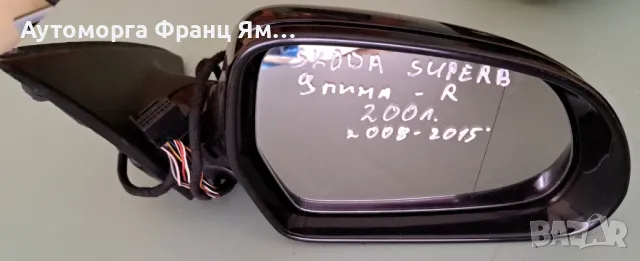 Автоморга Франц Ям...
SKODA SUPERB
9 пина - R
200л.
2008-2015
BAZAR